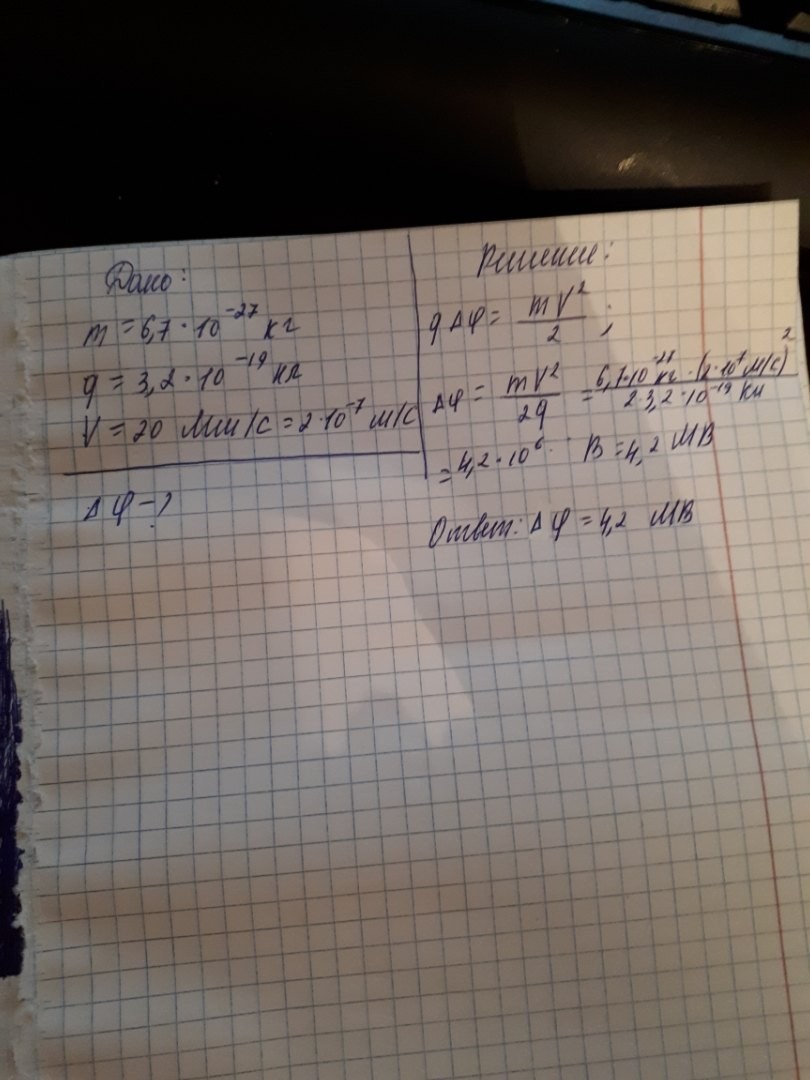 Дано:
m = 6,7 · 10⁻²⁷ кг
q = 3,2 · 10⁻¹⁹ кл
V = 20 Мм/с = 2·10⁻⁷ м/с
Δφ - ?
Решение:
qΔφ = mV²/2 ;
Δφ = mV²/2q = 6,7·10⁻²⁷ кг · (2·10⁷ м/с)²/2·3,2·10⁻¹⁹ Кл
= 4,2 · 10⁶ В = 4,2 МВ
Ответ: Δφ = 4,2 МВ